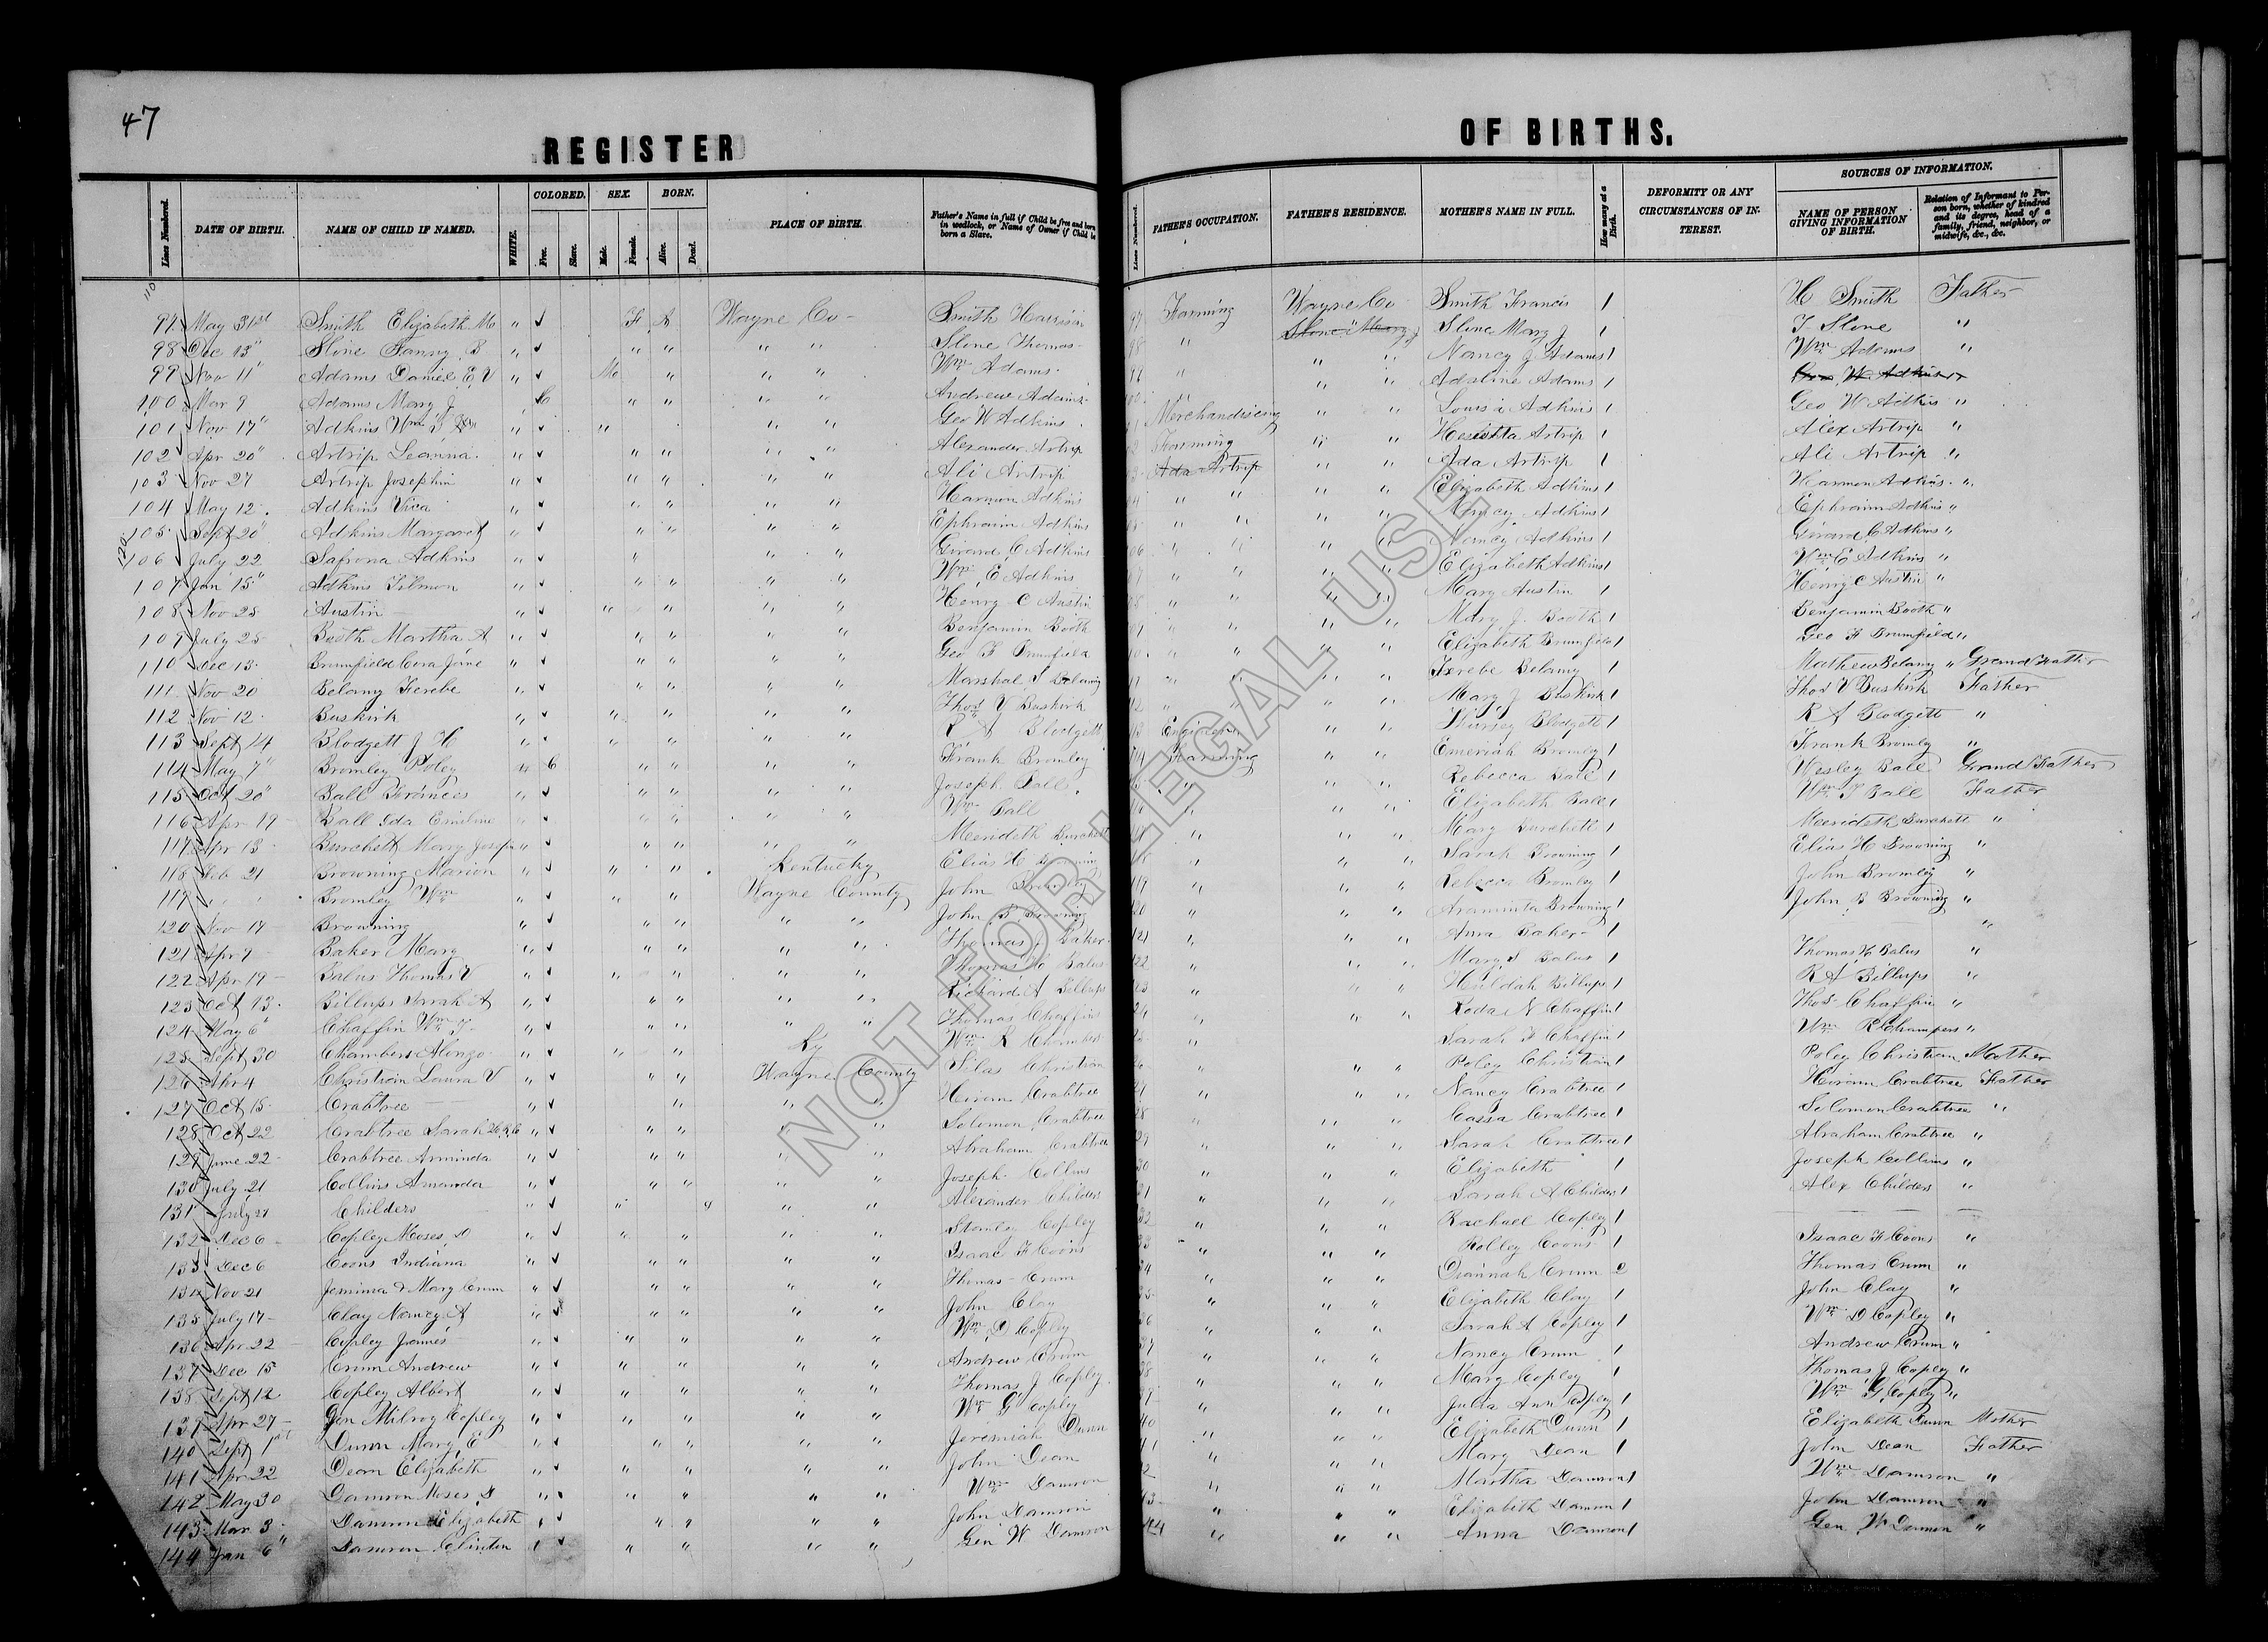 47
REGISTER OF BIRTHS.
Lines Numbered. DATE OF BIRTH. NAME OF CHILD IF NAMED. WHITE. COLORED. Free. Slave. SEX. Male. Female. BORN. Alive. Dead. PLACE OF BIRTH. Father's Name in full if Child be free and born in wedlock, or Name of Owner if Child be born a Slave. Lines Numbered. FATHER'S OCCUPATION. FATHER'S RESIDENCE. MOTHER'S NAME IN FULL. How many at a Birth. DEFORMITY OR ANY CIRCUMSTANCES OF INTEREST. SOURCES OF INFORMATION. NAME OF PERSON GIVING INFORMATION OF BIRTH. Relation of Informant to Person born, whether of kindred and its degree, head of a family, friend, neighbor, or midwife, &c., &c.
110
97 May 31st Smith Elizabeth M " ✓ F A Wayne Co - Smith Harrison 97 Farming Wayne Co Smith Francis 1 H Smith Father
98 Dec 13" Slone Fanny B " ✓ " " " " Slone Thomas 98 " Slone Mary J Slone Mary J 1 T Slone "
99 Nov 11" Adams Daniel E V " ✓ M " " " Wm Adams " " " Nancy J Adams 1 Wm Adams "
100 Mar 9 Adams Mary J " " " " " Andrew Adams " " " Adaline Adams 1 Geo W Adkins
101 Nov 17" Adkins Wm " ✓ " " " Geo W Adkins Merchandising " " Louisa Adkins 1 Geo W Adkins "
102 Apr 20" Artrip Leanna " ✓ " " " " Alexander Artrip Farming " " Artrip 1 Alex Artrip "
103 Nov 27 Artrip Josephin " ✓ " " " " Ali Artrip Ada Artrip " " Ada Artrip 1 Ali Artrip "
104 May 12 Adkins Vica " ✓ " " " " Harmon Adkins " " " " Elizabeth Adkins 1 Harmon Adkins "
105 Sept 20" Adkins Margaret " ✓ " " " " Ephraim Adkins " " " " Nancy Adkins 1 Ephraim Adkins "
106 July 22 Safrona Adkins " ✓ " " " " Girard C Adkins " " " " Nancy Adkins 1 Girard C Adkins "
107 Jan 15" Adkins Tilmon " ✓ " " " " Wm E Adkins " " " " Elizabeth Adkins 1 Wm E Adkins "
108 Nov 28 Austin " ✓ " " " " Henry C Austin " " " " Mary Austin 1 Henry C Austin "
109 July 25 Booth Martha A " ✓ " " " " Benjamin Booth " " " " Mary J. Booth 1 Benjamin Booth "
110 Dec 13 Brumfield Cora Jane " ✓ " " " " Geo F Brumfield " " " " Elizabeth Brumfield 1 Geo F Brumfield "
111 Nov 20 Belamy Ferebe " ✓ " " " " Marshal Belamy " " " " Ferebe Belamy 1 Mathew Belamy " Grand Father
112 Nov 12 Buskirk " ✓ " " " " Thos V Buskirk " " " " Mary J Buskirk 1 Thos V Buskirk Father
113 Sept 14 Blodgett J H " ✓ " " " " R A Blodgett Engineer " " Blodgett 1 R A Blodgett "
114 May 7" Bromley Poley " " " " " Frank Bromley 114 Farming " " Bromley 1 Frank Bromley "
115 Oct 20" Ball Frances " ✓ " " " " Joseph Ball " " " Rebecca Ball 1 Wesley Ball Grand Father
116 Apr 19 Ball Ida Emiline " ✓ " " " " Wm Ball " " " Elizabeth Ball 1 Wm T Ball Father
117 Apr 13 Burchett Mary Joseph " ✓ " " " " Merideth Burchett " " " Mary Burchett 1 Merideth Burchett "
118 Feb 21 Browning Marion " ✓ " " Kentucky Elias H Browning " " " Sarah Browning 1 Elias H Browning "
119 " " Bromley Wm " ✓ " " Wayne County John Bromley 119 " " " Rebecca Bromley 1 John Bromley "
120 Nov 17 Browning " ✓ " " " " John B Browning 20 " " " Araminta Browning 1 John B Browning "
121 Apr 9 Baker Mary " ✓ " " " " Thomas J Baker 121 " " " Anna Baker 1 "
122 Apr 19 Balus Thomas V " ✓ " " " " Thomas H Balus 122 " " " Mary S Balus 1 Thomas H Balus "
123 Oct 13 Billups Sarah A " ✓ " " " " Richard A Billups 23 " " " Huldah Billups 1 R A Billups "
124 May 6" Chaffin Wm T " ✓ " " " " Thomas Chaffin 24 " " " Roda N Chaffin 1 Thos Chaffin "
125 Sept 30 Chambers Alonzo " ✓ " " Ky Wm R Chambers " Sarah F Chaffin 1 Wm R Champers "
126 Apr 4 Christian Laura V " ✓ " " Wayne County Silas Christian " " " Poley Christian 1 Poley Christian Mother
127 Oct 15 Crabtree " ✓ " " " Hiram Crabtree " " " Nancy Crabtree 1 Hiram Crabtree Father
128 Oct 22 Crabtree Sarah " ✓ " " " " Solomon Crabtree 28 " " " Cassa Crabtree 1 Solomon Crabtree "
129 June 22 Crabtree Arminda " ✓ " " " " Abraham Crabtree 29 " " " Sarah Crabtree 1 Abraham Crabtree "
130 July 21 Collins Amanda " ✓ " " " " Joseph Collins 30 " " " Elizabeth " 1 Joseph Collins "
131 July 27 Childers " ✓ " " " " Alexander Childers 31 " " " Sarah A Childers 1 Alex Childers "
132 Dec 6 Copley Moses D " ✓ " " " " Stanley Copley 32 " " " Rachael Copley 1
133 Dec 6 Coons Indiana " ✓ " " " " Isaac F Coons 33 " " " Polley Coons 1 Isaac F Coons "
134 Nov 21 Jemima & Mary Crum " ✓ " " " " Thomas Crum 34 " " " Crum 2 Thomas Crum "
135 July 17 Clay Nancy A " ✓ " " " " John Clay 35 " " " Elizabeth Clay 1 John Clay "
136 Apr 22 Copley James " ✓ " " " " Wm D Copley 36 " " " Sarah A Copley 1 Wm D Copley "
137 Dec 15 Crum Andrew " ✓ " " " " Andrew Crum 37 " " " Nancy Crum 1 Andrew Crum "
138 Sept 12 Copley Albert " ✓ " " " " Thomas J Copley 38 " " " Mary Copley 1 Thomas J Copley "
139 Apr 27 Gen Milroy Copley " ✓ " " " " Wm G Copley " " " Julia Ann Copley 1 Wm G Copley "
140 Sept 1st Dunn Mary E " ✓ " " " " Jeremiah Dunn 40 " " " Elizabeth Dunn 1 Elizabeth Dunn Mother
141 Apr 22 Dean Elizabeth " ✓ " " " " John Dean 41 " " " Mary Dean 1 John Dean Father
142 May 30 Damron Moses D " ✓ " " " " Wm Damron 42 " " " Martha Damron 1 Wm Damron "
143 Mar 3 Damron Elizabeth " ✓ " " " " John Damron 43 " " " Elizabeth Damron 1 John Damron "
144 Jan 6" Damron Clinton " ✓ " " " " Gen W Damron 44 " " " Anna Damron 1 Gen W Damron "
NOT FOR LEGAL USE